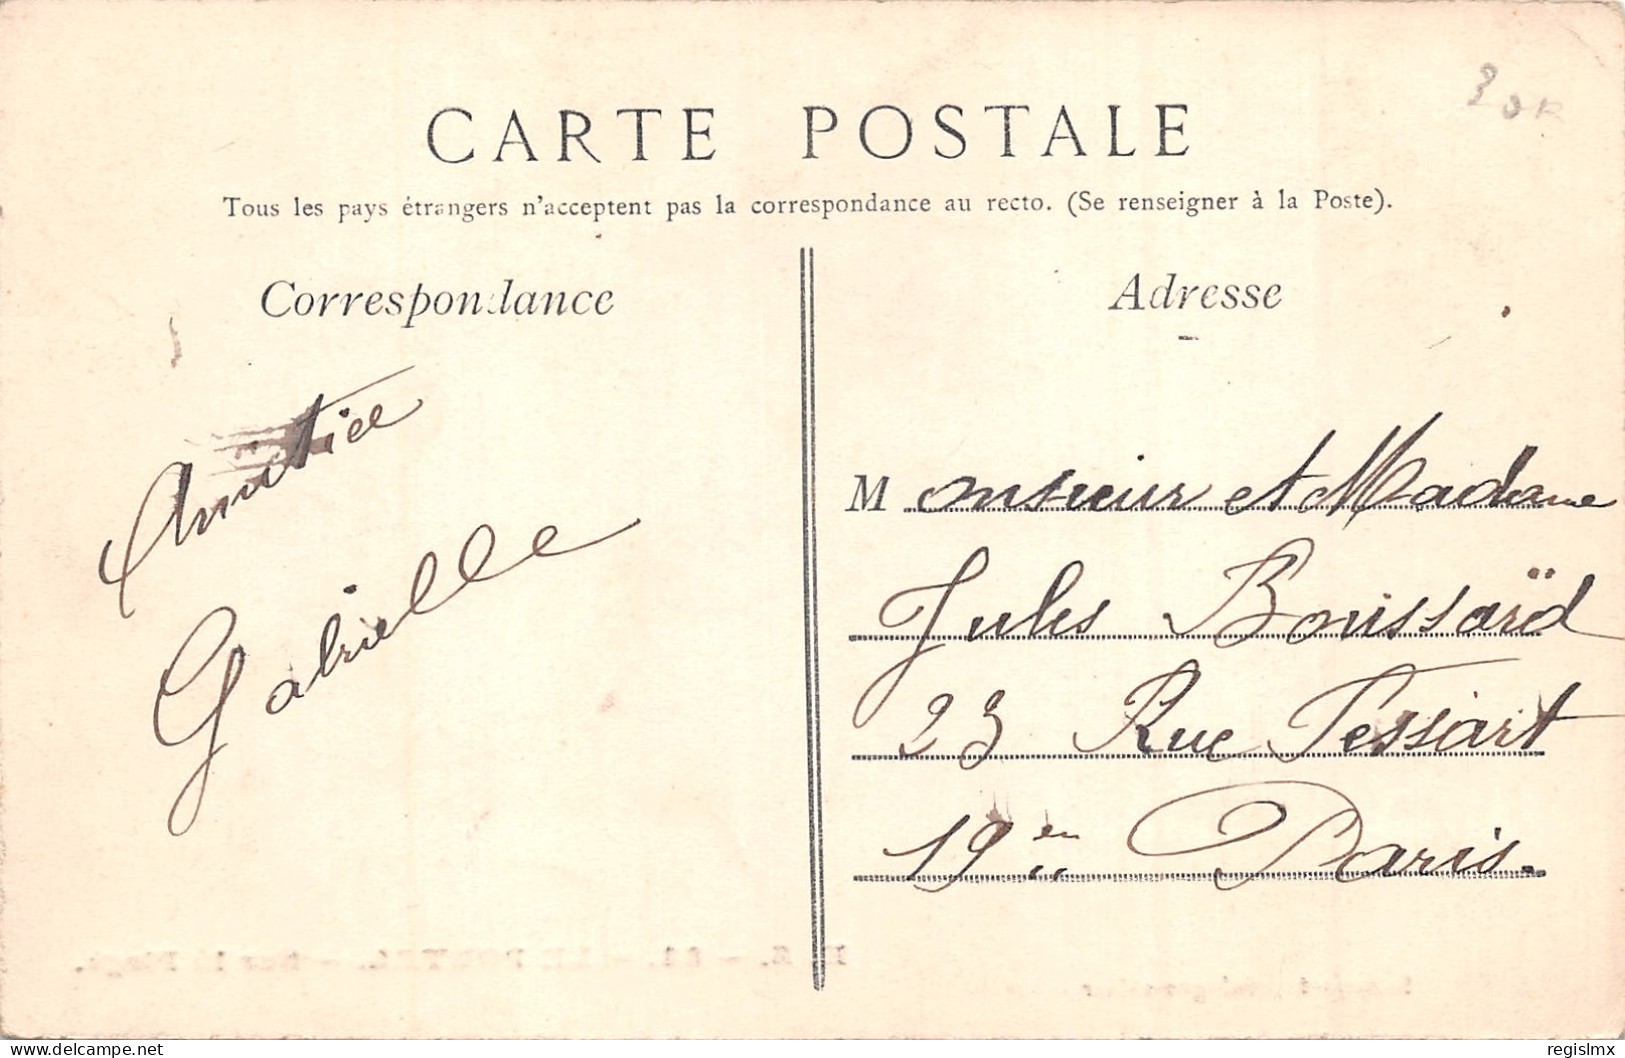 CARTE POSTALE
Tous les pays étrangers n'acceptent pas la correspondance au recto. (Se renseigner à la Poste).
Correspondance
Adresse
Amitiée
Gabrielle
Monsieur et Madame
Jules Boussaïd
23 Rue Tessart
19en Paris.
LE PORTEL. — Sur la Plage.
www.delcampe.net
regislmx